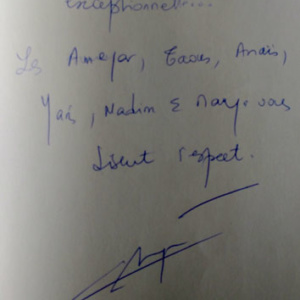 exceptionnelle...
Les Ameyar, Taous, Anaïs,
Yanis, Nadim & Marye vous
disent respect.